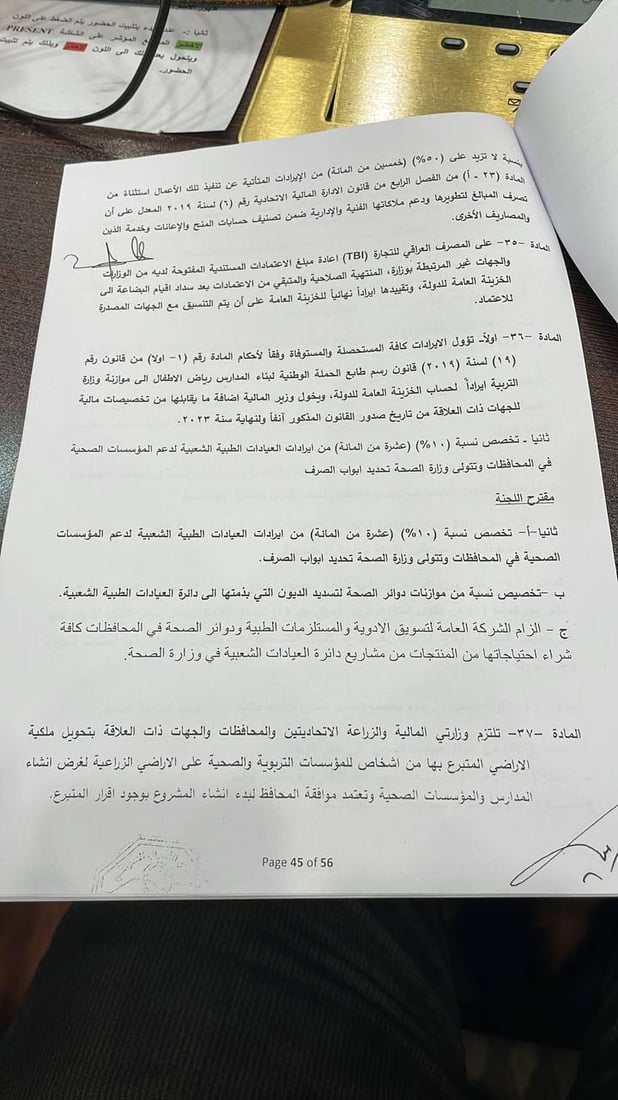 ثانيا :- عند البدء بتثبيت الحضور يتم الضغط على اللون
الاخضر المؤشر على الشاشة PRESENT
ويتحول بعد ذلك الى اللون الاحمر وبذلك يتم تثبيت
الحضور.
بنسبة لا تزيد على (٥٠%) (خمسين من المائة) من الإيرادات المتأتية عن تنفيذ تلك الأعمال استثناءً من
المادة (٢٣ - أ) من الفصل الرابع من قانون الادارة المالية الاتحادية رقم (٦) لسنة ٢٠١٩ المعدل على أن
تصرف المبالغ لتطويرها ودعم ملاكاتها الفنية والإدارية ضمن تصنيف حسابات المنح والإعانات وخدمة الدين
والمصاريف الأخرى.
المادة -٣٥- على المصرف العراقي للتجارة (TBI) اعادة مبلغ الاعتمادات المستندية المفتوحة لديه من الوزارات
والجهات غير المرتبطة بوزارة، المنتهية الصلاحية والمتبقي من الاعتمادات بعد سداد اقيام البضاعة الى
الخزينة العامة للدولة، وتقييدها ايراداً نهائياً للخزينة العامة على أن يتم التنسيق مع الجهات المصدرة
للاعتماد.
المادة -٣٦- اولاً- تؤول الايرادات كافة المستحصلة والمستوفاة وفقاً لأحكام المادة رقم (١- اولا) من قانون رقم
(١٩) لسنة (٢٠١٩) قانون رسم طابع الحملة الوطنية لبناء المدارس رياض الاطفال الى موازنة وزارة
التربية ايراداً لحساب الخزينة العامة للدولة، ويخول وزير المالية اضافة ما يقابلها من تخصيصات مالية
للجهات ذات العلاقة من تاريخ صدور القانون المذكور آنفاً ولنهاية سنة ٢٠٢٣ .
ثانيا - تخصص نسبة (١٠%) (عشرة من المائة) من ايرادات العيادات الطبية الشعبية لدعم المؤسسات الصحية
في المحافظات وتتولى وزارة الصحة تحديد ابواب الصرف
مقترح اللجنة
ثانيا-أ- تخصص نسبة (١٠%) (عشرة من المائة) من ايرادات العيادات الطبية الشعبية لدعم المؤسسات
الصحية في المحافظات وتتولى وزارة الصحة تحديد ابواب الصرف.
ب -تخصيص نسبة من موازنات دوائر الصحة لتسديد الديون التي بذمتها الى دائرة العيادات الطبية الشعبية.
ج - الزام الشركة العامة لتسويق الادوية والمستلزمات الطبية ودوائر الصحة في المحافظات كافة
شراء احتياجاتها من المنتجات من مشاريع دائرة العيادات الشعبية في وزارة الصحة.
المادة -٣٧- تلتزم وزارتي المالية والزراعة الاتحاديتين والمحافظات والجهات ذات العلاقة بتحويل ملكية
الاراضي المتبرع بها من اشخاص للمؤسسات التربوية والصحية على الاراضي الزراعية لغرض انشاء
المدارس والمؤسسات الصحية وتعتمد موافقة المحافظ لبدء انشاء المشروع بوجود اقرار المتبرع.
Page 45 of 56